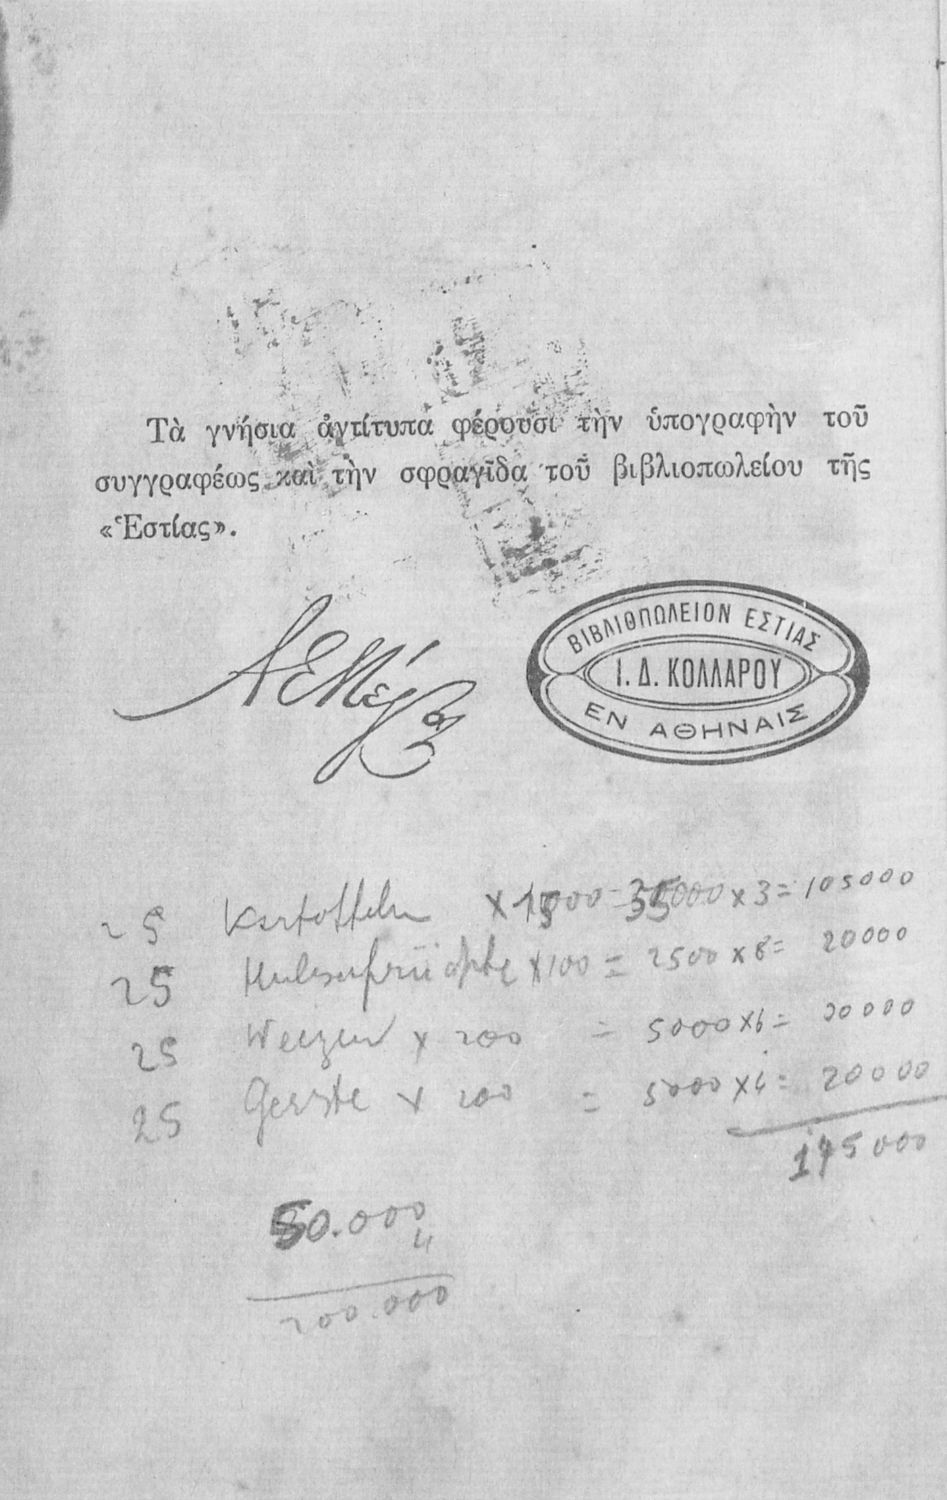 Τὰ γνήσια ἀντίτυπα φέρουσι τὴν ὑπογραφὴν τοῦ
συγγραφέως καὶ τὴν σφραγῖδα τοῦ βιβλιοπωλείου τῆς
«Ἑστίας».
ΒΙΒΛΙΟΠΩΛΕΙΟΝ ΕΣΤΙΑΣ
Ι. Δ. ΚΟΛΛΑΡΟΥ
ΕΝ ΑΘΗΝΑΙΣ
25 Kartoffeln x = 35000 x 3 = 105000
25 Hulsenfrüchte x 100 = 2500 x 8 = 20000
25 Weizen x 200 = 5000 x 6 = 30000
25 Gerste x 200 = 5000 x = 20000
175000
50.000
4
200.000